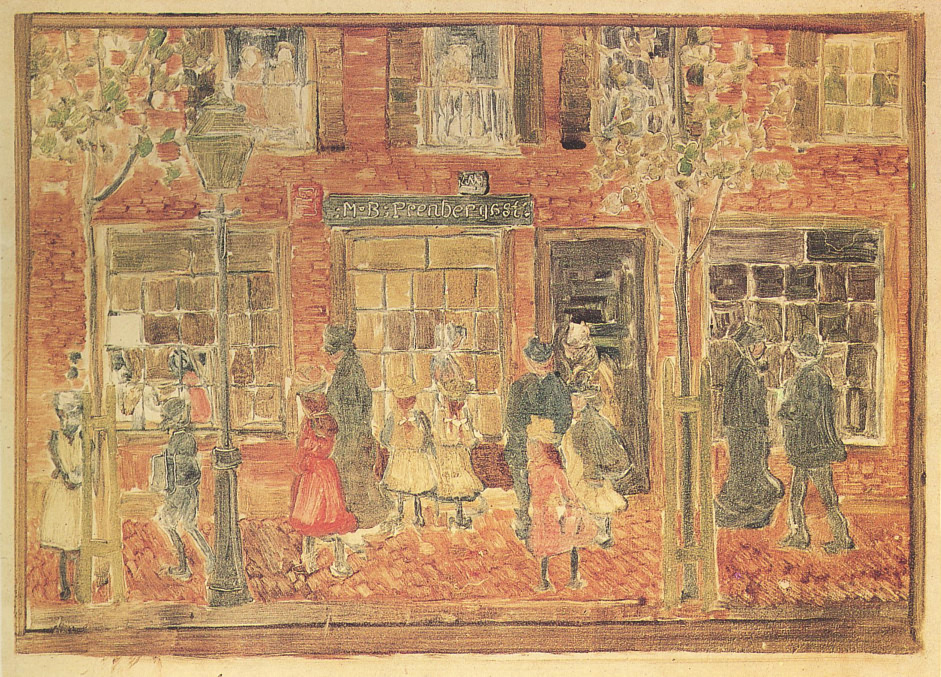 ·M·B·Prendergast·